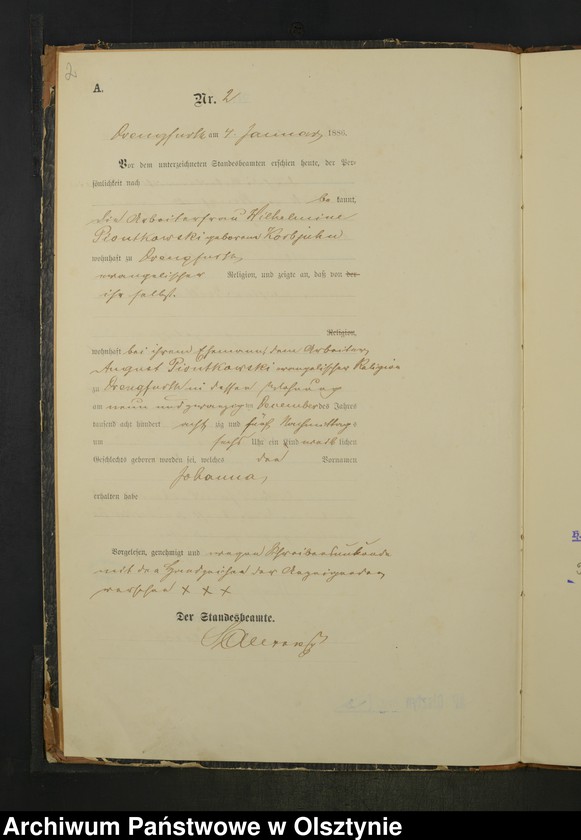 2
A.
Nr. 2
Drengfurth am 4. Januar 1886.
Vor dem unterzeichneten Standesbeamten erschien heute, der Per-
sönlichkeit nach
be kannt,
die Arbeiterfrau Wilhelmine
Piontkowski geborene
wohnhaft zu Drengfurth
evangelischer Religion, und zeigte an, daß von der
ihr selbst.
Religion,
wohnhaft bei ihrem Ehemann, dem Arbeiter
August Piontkowski evangelischer Religion
zu Drengfurth in dessen Wohnung
am neun und zwanzigsten December des Jahres
tausend acht hundert acht zig und fünf Nachmittags
um sechs Uhr ein Kind weib lichen
Geschlechts geboren worden sei, welches den Vornamen
Johanna,
erhalten habe
Vorgelesen, genehmigt und wegen Schreibensunkunde
mit den Handzeichen der Anzeigenden
versehen × × ×
Der Standesbeamte.
Archiwum Państwowe w Olsztynie